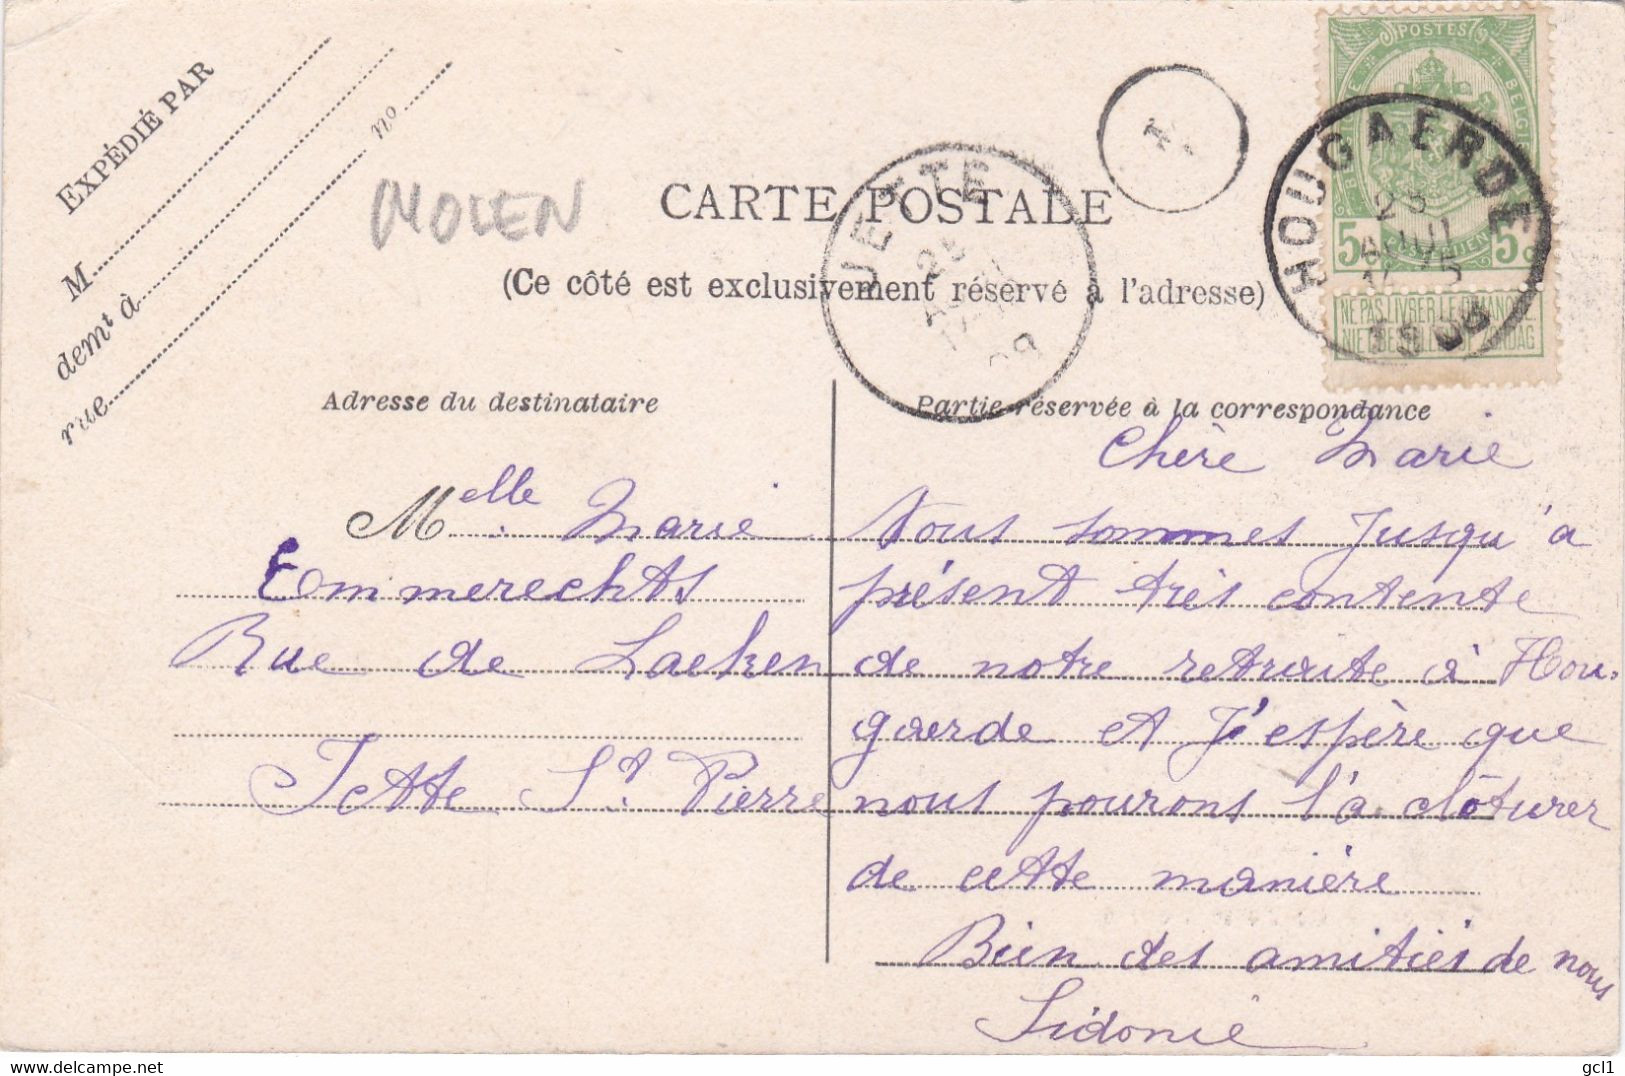 EXPÉDIÉ PAR
M
demt à
rue
no
MOLEN
CARTE POSTALE
(Ce côté est exclusivement réservé à l'adresse)
JETTE
25
09
POSTES
BELGIQUE
BELGIE
5c 5c
NE PAS LIVRER LE DIMANCHE
NIET BESTELLEN OP ZONDAG
HOUGAERDE
25
1909
Adresse du destinataire
Melle Marie
Commerechts
Rue de Laeken
Jette St Pierre
Partie réservée à la correspondance
Chère Marie
Nous sommes jusqu'à
présent très contente
de notre retraite à Hou-
gaerde et j'espère que
nous pourons l'a clôturer
de cette manière
Bien des amitiés de nous
Sidonie
delcampe.net
gcl1